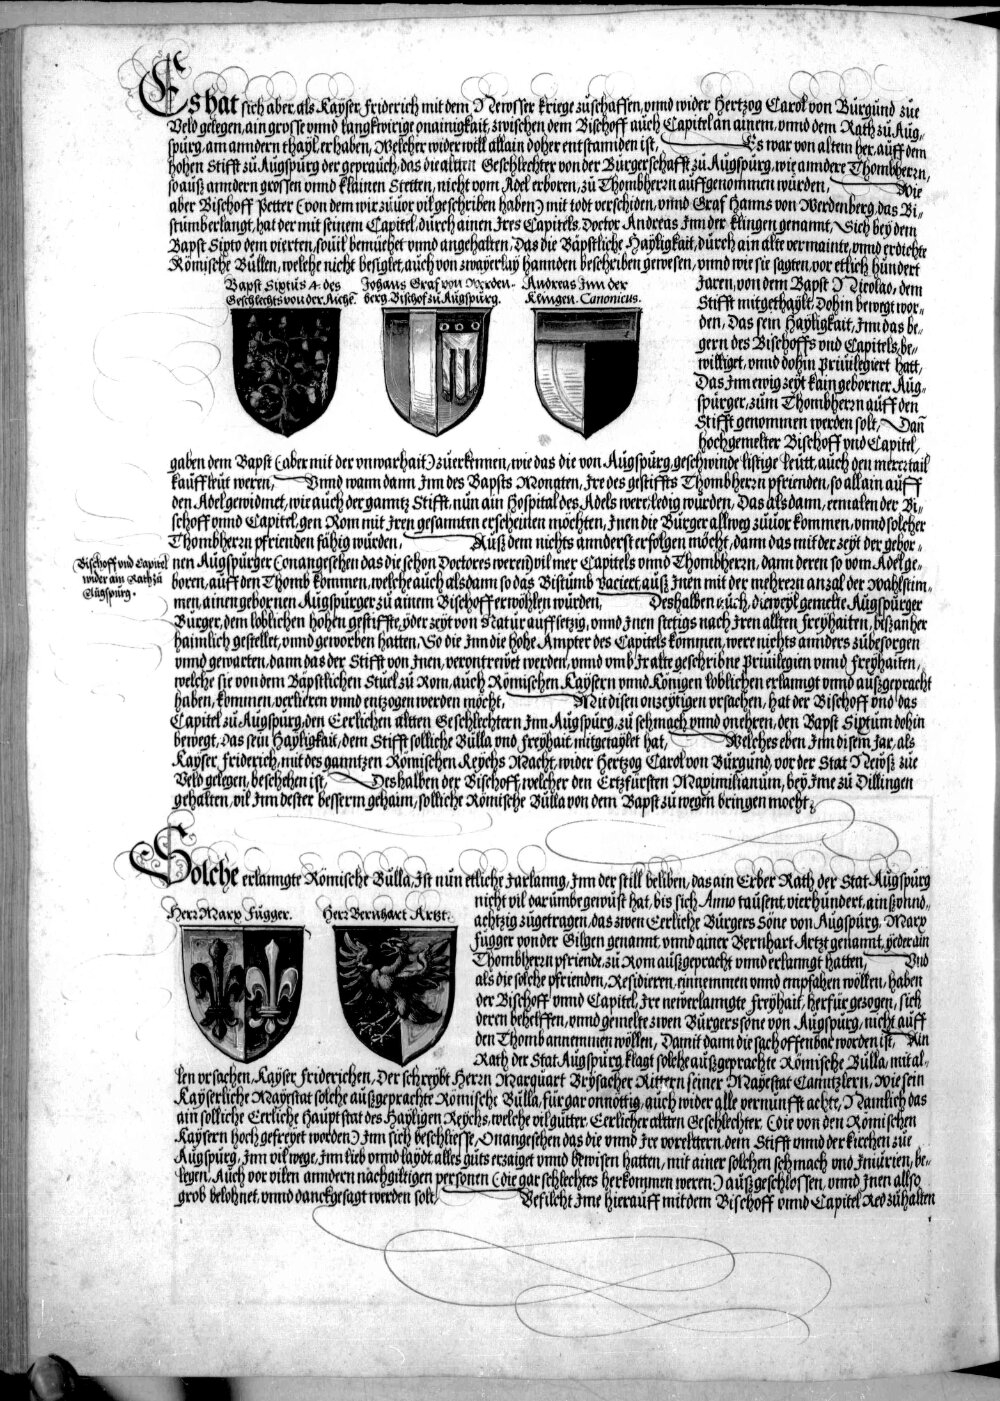 Es hat sich aber, als Kayser Friderich mit dem Neusser kriege zuschaffen, vnnd wider Hertzog Carol von Burgund zue
Veld gelegen, ain grosse vnnd langkwirige onainigkait, zwischen dem Bischoff auch Capitel an ainem, vnnd dem Rath zu Aug-
spurg, am anndern thayl, erhaben, Welcher widerwill allain doher entstannden ist, Es war von altem her, auff dem
hohen Stifft zu Augspurg der geprauch, das die altten Geschlechter von der Bürgerschafft zu Augspurg, wie anndere Thombherrn,
so auß anndern grossen vnnd klainen Stetten, nicht vom Adel erboren, zu Thombherrn auffgenommen wurden, Wie
aber Bischoff Petter (von dem wir zuuor vil geschriben haben) mit todt verschiden, vnnd Graf Hanns von Werdenberg, das Bi-
stumb erlangt, hat der mit seinem Capitel, durch ainen Jres Capitels, Doctor Andreas Jnn der klingen genannt, Sich bey dem
Bapst Sixto dem vierten, souil bemüehet vnnd angehalten, Das die Bäpstliche Hayligkait, durch ain alte vermainte, vnnd erdichte
Römische Bullen, welche nicht besiglet, auch von zwayerlay hannden beschriben gewesen, vnnd wie sie sagten, vor etlich hundert
Bapst Sixtus 4. des
Geschlechts von der Aiche.
Johans Graf von Werden-
berg, Bischof zu Augspurg.
Andreas Jnn der
Klingen. Canonicus.
Jaren, von dem Bapst Nicolao, dem
Stifft mitgethaylt, Dohin bewegt wor-
den, Das sein Hayligkait, Jnn das be-
gern des Bischoffs vnd Capitels, be-
williget, vnnd dohin priuilegiert hatt,
Das Jnn ewig zeyt kain geborner Aug-
spurger, zum Thombherrn auff den
Stifft genommen werden solt, Dañ
hochgemelter Bischoff vnd Capitel,
gaben dem Bapst (aber mit der vnwarhait) zuerkennen, wie das die von Augspurg, geschwinde listige leütt, auch den merertail
kauffleüt weren, Vnnd wann dann Jnn des Bapsts Monaten, Jre des gestiffts Thombherrn pfrienden, so allain auff
den Adel gewidmet, wie auch der ganntz Stifft, nun ain Hospital des Adels were, ledig wurden, Das als dann, ernialen der Bi-
schoff vnnd Capitel, gen Rom mit Jren gesannten erscheinen möchten, Jnen die Burger allweg zuuor kommen, vnnd solcher
Thombherrn pfrienden fähig wurden, Auß dem nichts annderst erfolgen möcht, dann das mit der zeyt der gebor-
Bischoff vnd Capitel
wider ain Rath zu
Augspurg.
nen Augspurger (onangesehen das die schon Doctores weren) vil mer Capitels vnnd Thombherrn, dann deren so vom Adel ge-
boren, auff den Thomb kommen, welche auch alsdann so das Bistumb vaciert, auß Jnen mit der mehrern anzal der Wahlstim-
men, ainen gebornen Augspurger zu ainem Bischoff erwöhlen wurden, Deshalben auch, dieweyl gemelte Augspurger
Burger, dem loblichen hohen gestiffte, yder zeyt von Natur auffsetzig, vnnd Jnen stetigs nach Jren allten Freyhaiten, bißanher
haimlich gestellet, vnnd geworben hatten, So die Jnn die hohe Ampter des Capitels kommen, were nichts annders zubesorgen
vnnd gewarten, dann das der Stifft von Jnen, verontrewet werden, vnnd vmb Jr alte geschribne Priuilegien vnnd Freyhaiten,
welche sie von dem Bäpstlichen Stuel zu Rom, auch Römischen Kaysern vnnd Königen loblichen erlanngt vnnd außgepracht
haben, kommen, verlieren vnnd entzogen werden möcht, Mit disen onzeytigen vrsachen, hat der Bischoff vnd das
Capitel zu Augspurg, den Eerlichen alltten Geschlechtern Jnn Augspurg, zu schmach vnnd onehren, den Bapst Sixtum dohin
bewegt, das sein Hayligkait, dem Stifft solliche Bulla vnd Freyhait mitgetaylet hat, Welches eben Jnn disem Jar, als
Kayser Friderich, mit des ganntzen Römischen Reychs Macht, wider Hertzog Carol von Burgund, vor der Stat Neüß zue
Veld gelegen, beschehen ist, Deshalben der Bischoff, welcher den Ertzfürsten Maximilianum, bey Jme zu Dillingen
gehalten, vil Jnn dester besserm gehaim, solliche Römische Bulla von dem Bapst zuwegen bringen mocht.
Solche erlanngte Römische Bulla, Jst nun etliche Jarlanng, Jnn der still beliben, das ain Erber Rath der Stat Augspurg
Herr Marx Fugger.
Herr Bernhart Artzt.
nicht vil darumb gewüst hat, bis sich Anno tausent, vierhundert, ainßvnnd-
achtzig zugetragen, das zwen Eerliche Burgers Söne von Augspurg, Marx
Fugger von der Gilgen genannt, vnnd ainer Bernhart Artzt genannt, yeder ain
Thombherrn pfriende, zu Rom außgepracht vnnd erlanngt hatten, Vnd
als die solche pfrienden, Residieren, einnemmen vnnd empfahen wöllen, haben
der Bischoff vnnd Capitel, Jre newerlanngte Freyhait, herfür gezogen, sich
deren behelffen, vnnd gemelte zwen Burgers söne von Augspurg, nicht auff
den Thomb annemmen wöllen, Damit dann die sach offenbar worden ist, Ain
Rath der Stat Augspurg, klagt solche außgeprachte Römische Bulla, mit al-
len vrsachen, Kayser Friderichen, Der schreybt Herrn Marquart Brysacher Rittern seiner Mayestat Canntzlern, Wie sein
Kayserliche Mayestat solche außgeprachte Römische Bulla, für gar onnöttig, auch wider alle vernunfft achte, Namlich das
ain solliche Eerliche Hauptstat des Hayligen Reychs, welche vil gutter, Eerlicher altten Geschlechter (die von den Römischen
Kaysern hoch gefreyet worden) Jnn sich beschliesse, Onangesehen das die vnnd Jre voreltern, dem Stifft vnnd der kirchen zue
Augspurg, Jnn vil wege, Jnn lieb vnnd layd, alles guts erzaiget vnnd bewisen hatten, mit ainer solchen schmach vnd Jniurien, be-
legen, Auch vor vilen anndern nachgiltigen personen (die gar schlechtes herkommen weren) außgeschlossen, vnnd Jnen allso
grob belohnet, vnnd danckgesagt werden solt, Befilcht Jme hierauff mit dem Bischoff vnnd Capitel Red zuhalten